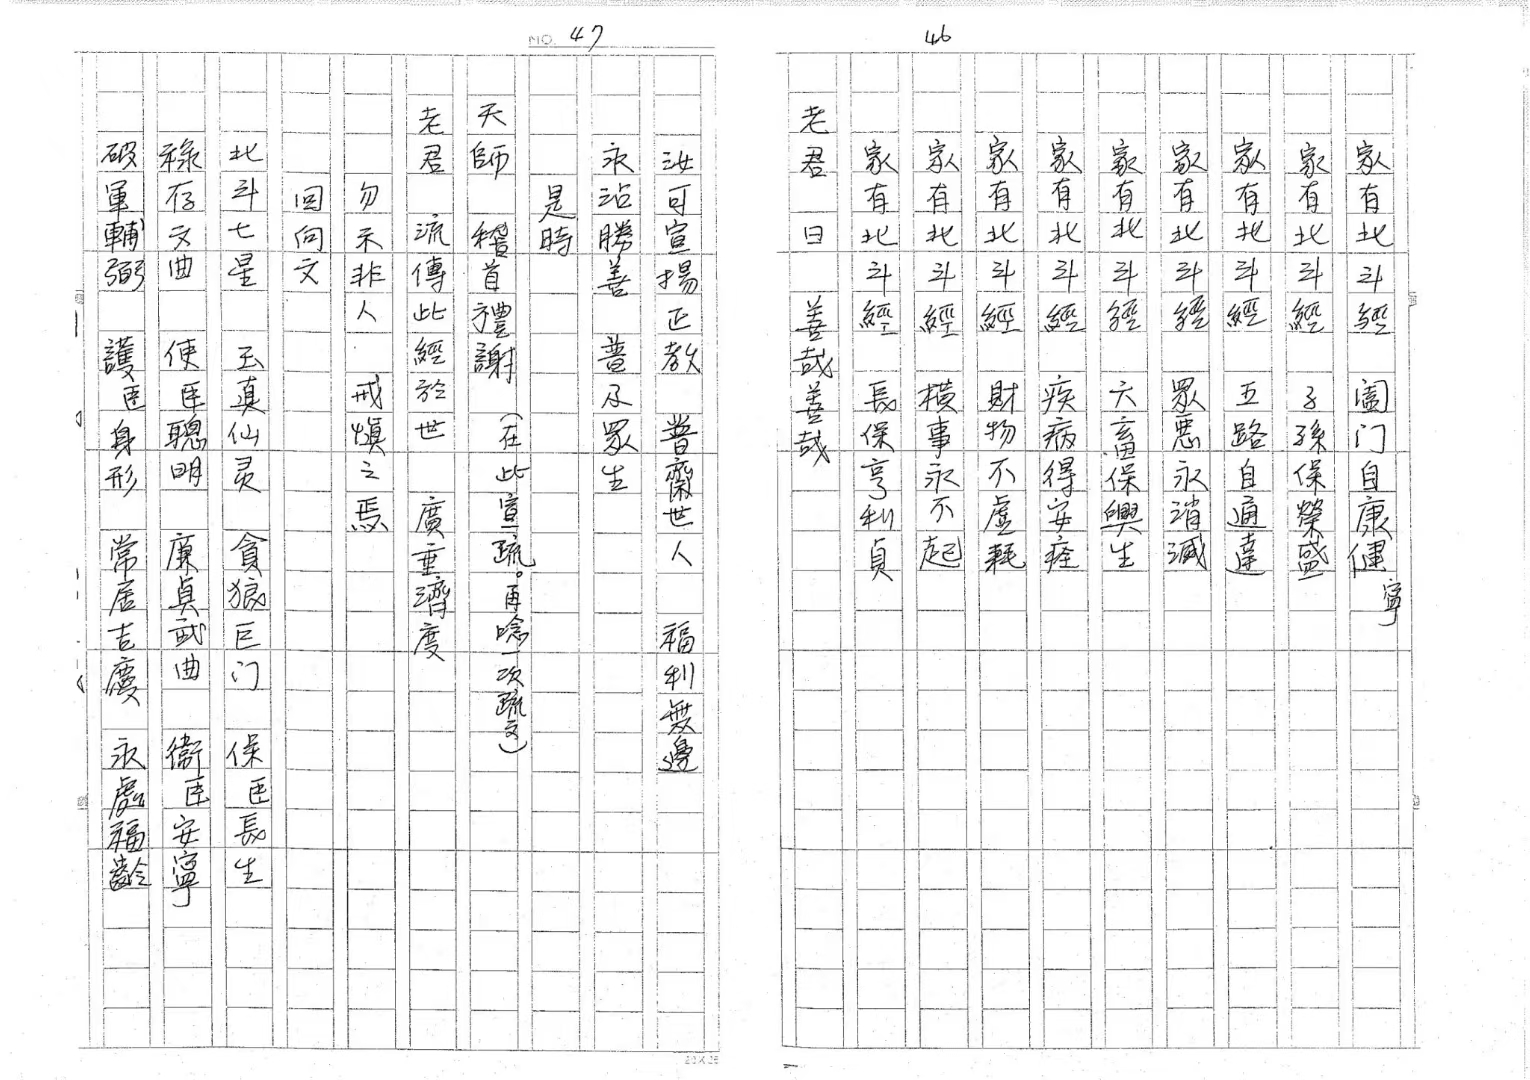 46
家有北斗經　闔门自康健
寧
家有北斗經　子孫保榮盛
家有北斗經　五路自通達
家有北斗經　眾惡永消滅
家有北斗經　六畜保興生
家有北斗經　疾病得安痊
家有北斗經　財物不虛耗
家有北斗經　橫事永不起
家有北斗經　長保亨利貞
老君曰　善哉善哉
NO. 47
汝可宣揚正教　普齋世人　福利無邊
永沾勝善　普及眾生
是時
天師　稽首禮謝　(在此宣疏。再唸一次疏文)
老君　流傳此經於世　廣垂濟度
勿示非人　戒慎之焉
回向文
北斗七星　玉真仙灵　貪狼巨门　保臣長生
祿存文曲　使臣聰明　廉貞武曲　衞臣安寧
破軍輔弼　護臣身形　常居吉慶　永處福齡